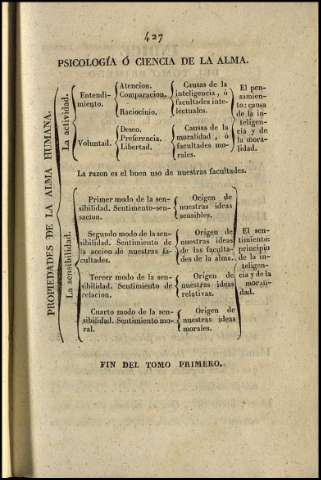 427
PSICOLOGÍA Ó CIENCIA DE LA ALMA.
PROPIEDADES DE LA ALMA HUMANA.
La actividad.
Entendi-
miento.
Atencion.
Comparacion.
Raciocinio.
Causas de la
inteligencia, ó
facultades inte-
lectuales.
Voluntad.
Deseo.
Preferencia.
Libertad.
Causas de la
moralidad, ó
facultades mo-
rales.
El pen-
samien-
to: causa
de la in-
teligen-
cia y de
la mora-
lidad.
La razon es el buen uso de nuestras facultades.
La sensibilidad.
Primer modo de la sen-
sibilidad. Sentimento-sen-
sacion.
Origen de
nuestras ideas
sensibles.
Segundo modo de la sen-
sibilidad. Sentimiento de
la accion de nuestras fa-
cultades.
Origen de
nuestras ideas
de las faculta-
des de la alma.
Tercer modo de la sen-
sibilidad. Sentimiento de
relacion.
Origen de
nuestras ideas
relativas.
Cuarto modo de la sen-
sibilidad. Sentimiento mo-
ral.
Origen de
nuestras ideas
morales.
El sen-
timiento:
principio
de la in-
teligen-
cia y de la
morali-
dad.
FIN DEL TOMO PRIMERO.